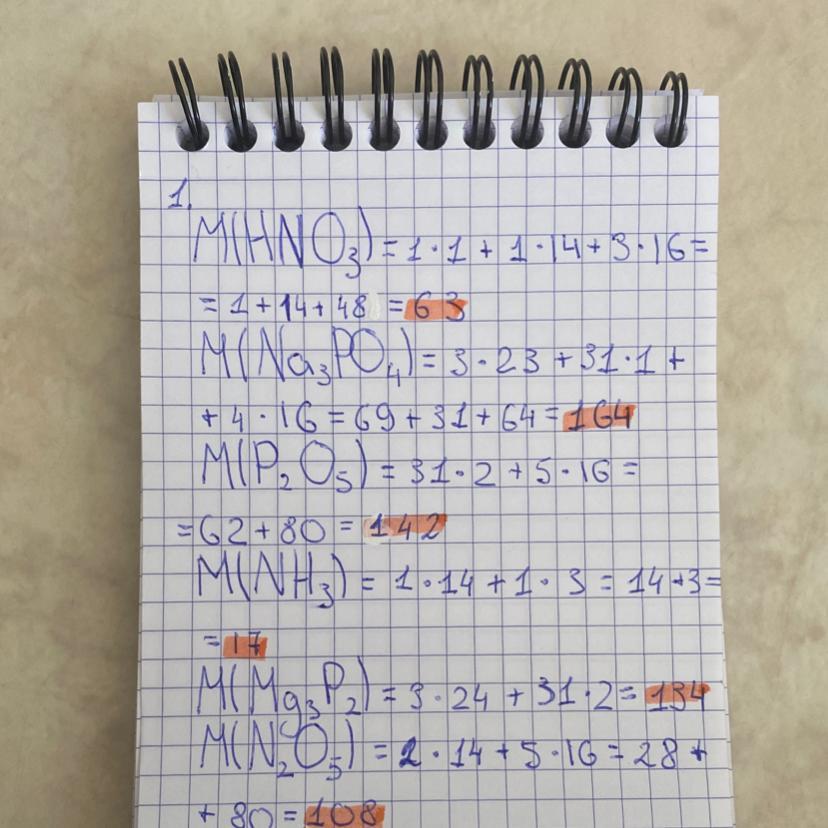 1.
M(HNO₃) = 1·1 + 1·14 + 3·16 =
= 1 + 14 + 48 = 63
M(Na₃PO₄) = 3·23 + 31·1 +
+ 4·16 = 69 + 31 + 64 = 164
M(P₂O₅) = 31·2 + 5·16 =
= 62 + 80 = 142
M(NH₃) = 1·14 + 1·3 = 14 + 3 =
= 17
M(Mg₃P₂) = 3·24 + 31·2 = 134
M(N₂O₅) = 2·14 + 5·16 = 28 +
+ 80 = 108